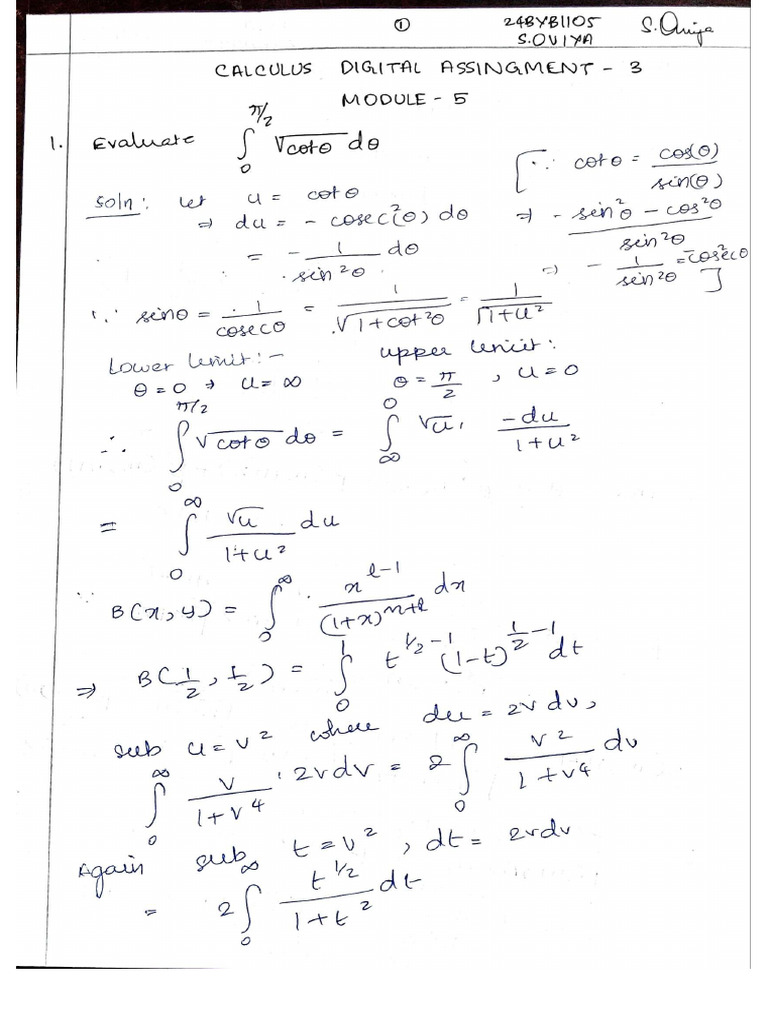 ①
24BYB1105
S. OVIYA
S. Oviya
CALCULUS DIGITAL ASSINGMENT - 3
MODULE - 5
1. Evaluate ∫₀^{π/2} √cotθ dθ
[∵ cotθ = cos(θ)/sin(θ)
Soln: let u = cotθ
⇒ du = - cosec²(θ) dθ
⇒ (-sin²θ - cos²θ)/sin²θ
= - 1/sin²θ dθ
⇒ - 1/sin²θ = -cosec²θ ]
∵ sinθ = 1/cosecθ = 1/√(1+cot²θ) = 1/√(1+u²)
Lower limit:-
upper limit:
θ = 0 ⇒ u = ∞
θ = π/2, u = 0
∴ ∫₀^{π/2} √cotθ dθ = ∫_∞^0 √u. -du/(1+u²)
= ∫₀^∞ √u/(1+u²) du
∵ B(x,y) = ∫₀^∞ x^{l-1}/(1+x)^{m+l} dx
⇒ B(1/2, 1/2) = ∫₀^1 t^{1/2 -1} (1-t)^{1/2 -1} dt
sub u = v² where du = 2v dv,
∫₀^∞ v/(1+v⁴) . 2v dv = 2 ∫₀^∞ v²/(1+v⁴) dv
Again sub t = v², dt = 2v dv
= 2 ∫₀^∞ t^{1/2}/(1+t²) dt